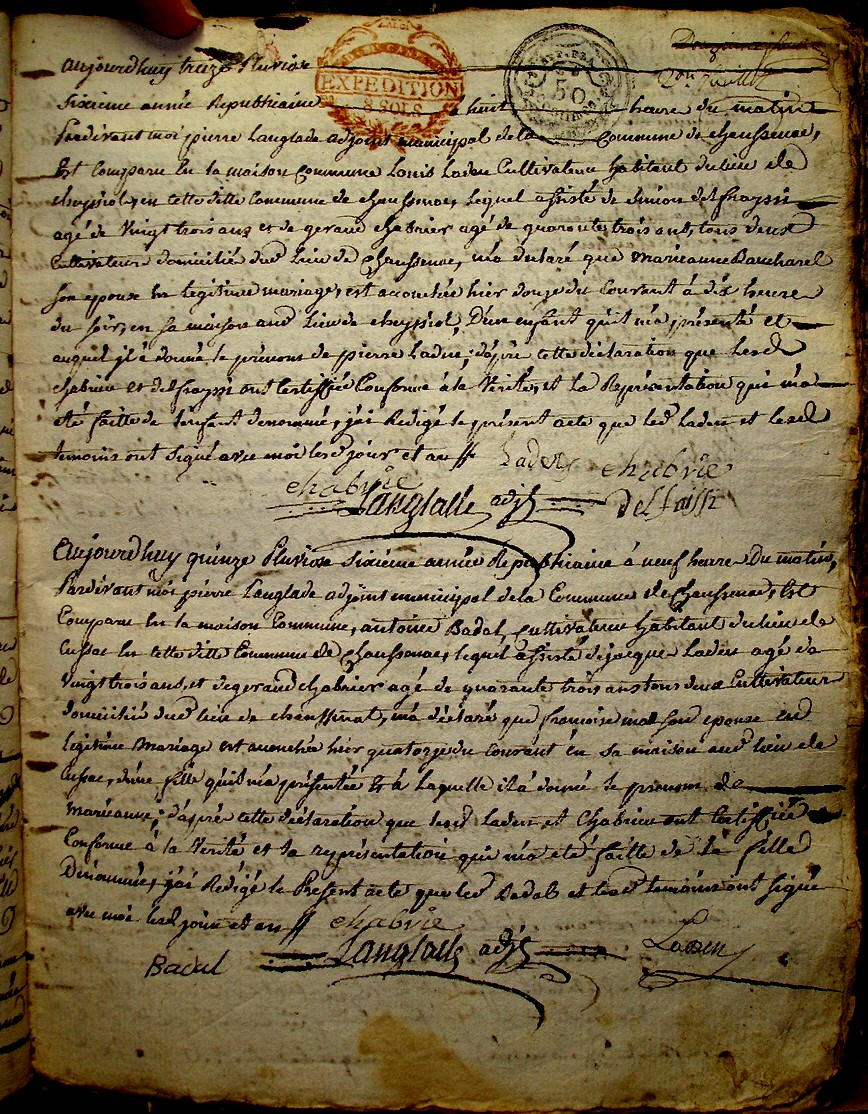 aujourdhuy treize Pluviose
EXPEDITION
8 SOLS
50
sixieme année Republicaine a huit heure du matin
Pardevant moi pierre Langlade adjoint municipal de la Commune de chaussenac,
Est Comparu En la maison Commune Louis Laden Cultivateur habitant du lieu de
en cette ditte Commune de chaussenac, lequel assisté de simon delfrayssi
agé de Vingt trois ans et de geraud chabrier agé de quarante trois ans, tous deux
Cultivateur domicilié dud. Lieu de Chaussenac, m'a declaré que marieanne Baucharel
son epouse En legitime mariage, est accouchée hier douze du Courant à dix heure
du soir, en sa maison aud Lieu de D'un enfant qu'il m'a présenté et
auquel jl à donné le prénom de pierre Laden; d'apre cette déclaration que Lesd
chabrier et delfrayssi ont Certiffié Conforme à la Verité, et La Représentation qui m'a
été faitte de l'enfant denommé, j'ai Redigé le présent acte que led Laden et Lesd
temoins ont signé avec moi lesd jour et an
Laden chabrie
chabrie Langlade adjt delfaissi
aujourdhuy quinze Pluviose sixième année Republicaine à neuf heure Du matin,
Pardevant moi pierre Langlade adjoint municipal de la Commune de Chaussenac, Est
Comparu En la maison Commune, antoine Badal, Cultivateur habitant du lieu de
Cussac En cette ditte Commune de Chaussenac, lequel assisté de jacque Laden agé de
Vingt trois ans, et de geraud chabrier agé de quarante trois ans tous deux Cultivateur
domicilié dud lieu de chaussenat, m'a déclaré que francoise mas son epouse en
legitime Mariage est accouchée hier quatorze du Courant en sa maison aud lieu de
Cussac, d'une fille qu'il m'a présentée Et à Laquelle il à donné le prenom de
Marieanne; d'après cette déclaration que lesd Laden et Chabrier ont Certiffiée
Conforme à la Verité et la représentation qui m'a été faitte de la fille
Dénommée, j'ai Redigé le Présent acte que led Badal et Lesd temoins ont signé
avec moi lesd jour et an chabrie
Badal Langlade adjt Laden